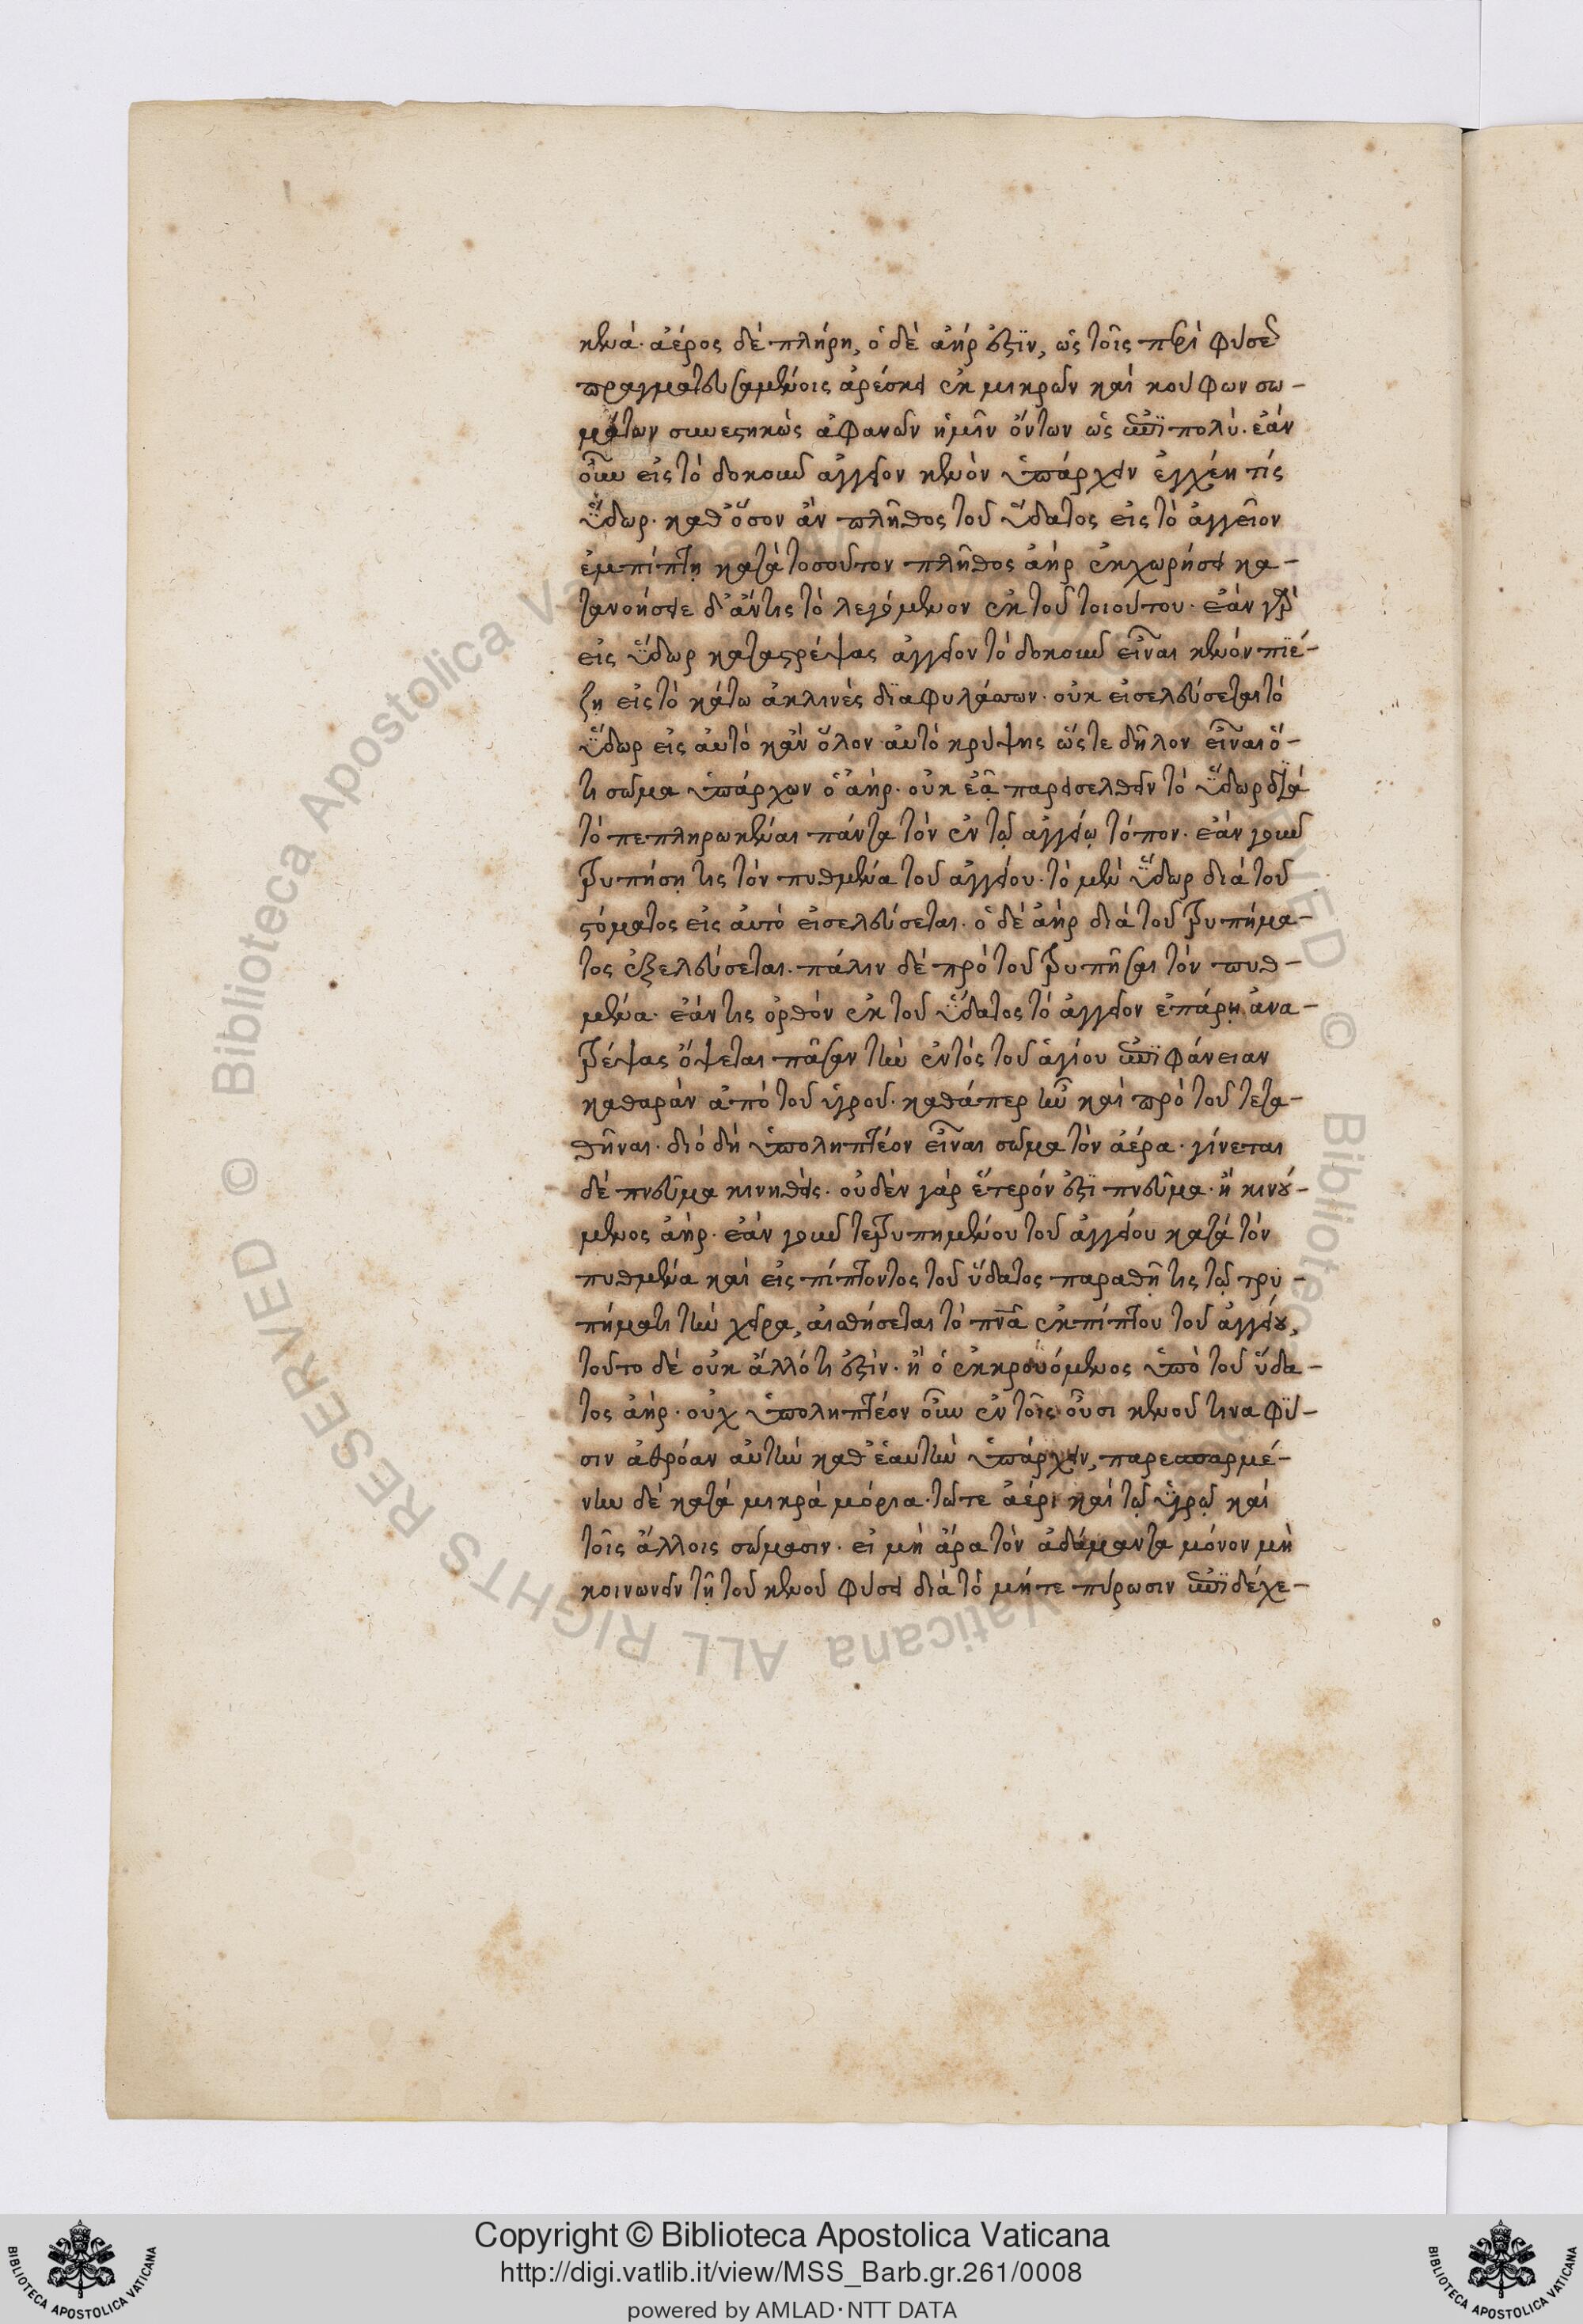 κενά· ἀέρος δὲ πλήρη, ὁ δὲ ἀήρ ἐστϊν, ὡς τοῖς περὶ φύσεως
πραγματευσαμένοις ἀρέσκει ἐκ μικρῶν καὶ κούφων σω-
μάτων συνεστηκὼς ἀφανῶν ἡμῖν ὄντων ὡς ἐπϊπολύ. ἐάν
οὖν εἰς τὸ δοκοῦν ἀγγεῖον κενὸν ὑπάρχειν ἐγχέη τίς
ὕδωρ. καθ᾽ ὅσον ἂν πλῆθος τοῦ ὕδατος εἰς τὸ ἀγγεῖον
ἐμπίπτῃ κατὰ τοσοῦτον πλῆθος ἀὴρ ἐκχωρήσει κα-
τανοήσειε δ᾽ ἄν τις τὸ λεγόμενον ἐκ τοῦ τοιούτου. ἐὰν γὰρ
εἰς ὕδωρ καταστρέψας ἀγγεῖον τὸ δοκοῦν εἶναι κενόν πϊέ-
ζῃ εἰς τὸ κάτω ἀκλινὲς δϊαφυλάττων. οὐκ εἰσελεύσεται τὸ
ὕδωρ εἰς αὐτὸ κἂν ὅλον αὐτὸ κρύψῃς ὥστε δῆλον εἶναι ὅ-
τι σῶμα ὑπάρχων ὁ ἀήρ. οὐκ ἐᾷ παρεισελθεῖν τὸ ὕδωρ διὰ
τὸ πεπληρωκέναι πάντα τὸν ἐν τῷ ἀγγείῳ τόπον. ἐὰν γοῦν
τρυπήσῃ τις τὸν πυθμένα τοῦ ἀγγείου. τὸ μὲν ὕδωρ διὰ τοῦ
στόματος εἰς αὐτὸ εἰσελεύσεται. ὁ δὲ ἀὴρ διὰ τοῦ τρυπήμα-
τος ἐξελεύσεται. πάλιν δὲ πρὸ τοῦ τρυπῆσαι τὸν πυθ-
μένα. ἐάν τις ὀρθὸν ἐκ τοῦ ὕδατος τὸ ἀγγεῖον ἐπάρῃ ἀνα-
τρέψας ὄψεται πᾶσαν τὴν ἐντὸς τοῦ ἁγίου ἐπϊφάνειαν
καθαρὰν ἀπὸ τοῦ ὑγροῦ. καθάπερ ἦν καὶ πρὸ τοῦ τετα-
θῆναι. διὸ δὴ ὑποληπτέον εἶναι σῶμα τὸν ἀέρα. γίνεται
δὲ πνεῦμα κινηθεὶς. οὐδὲν γάρ ἕτερόν ἐστϊ πνεῦμα. ἢ κινού-
μενος ἀήρ. ἐὰν γοῦν τετρυπημένου τοῦ ἀγγείου κατὰ τὸν
πυθμένα καὶ εἰς πίπτοντος τοῦ ὕδατος παραθῇ τις τῷ τρυ-
πήματι τὴν χεῖρα, αἰσθήσεται τὸ πνᾶ ἐκπίπτον τοῦ ἀγγείου,
τοῦτο δὲ οὐκ ἄλλό τι ἐστὶν. ἢ ὁ ἐκκρουόμενος ὑπὸ τοῦ ὕδα-
τος ἀήρ. οὐχ ὑποληπτέον οὖν ἐν τοῖς οὖσι κενοῦ τινα φύ-
σιν ἀθρόαν αὐτὴν καθ᾽ ἑαυτὴν ὑπάρχειν, παρεσπαρμέ-
νην δὲ κατὰ μικρὰ μόρια. τῶτε ἀέρι καὶ τῷ ὑγρῷ καὶ
τοῖς ἄλλοις σώμασιν. εἰ μὴ ἄρα τὸν ἀδάμαντα μόνον μὴ
κοινωνεῖν τῇ τοῦ κενοῦ φύσει διὰ τὸ μήτε πύρωσιν ἐπϊδέχε-
Copyright © Biblioteca Apostolica Vaticana
http://digi.vatlib.it/view/MSS_Barb.gr.261/0008
powered by AMLAD·NTT DATA
BIBLIOTECA APOSTOLICA VATICANA
BIBLIOTECA APOSTOLICA VATICANA